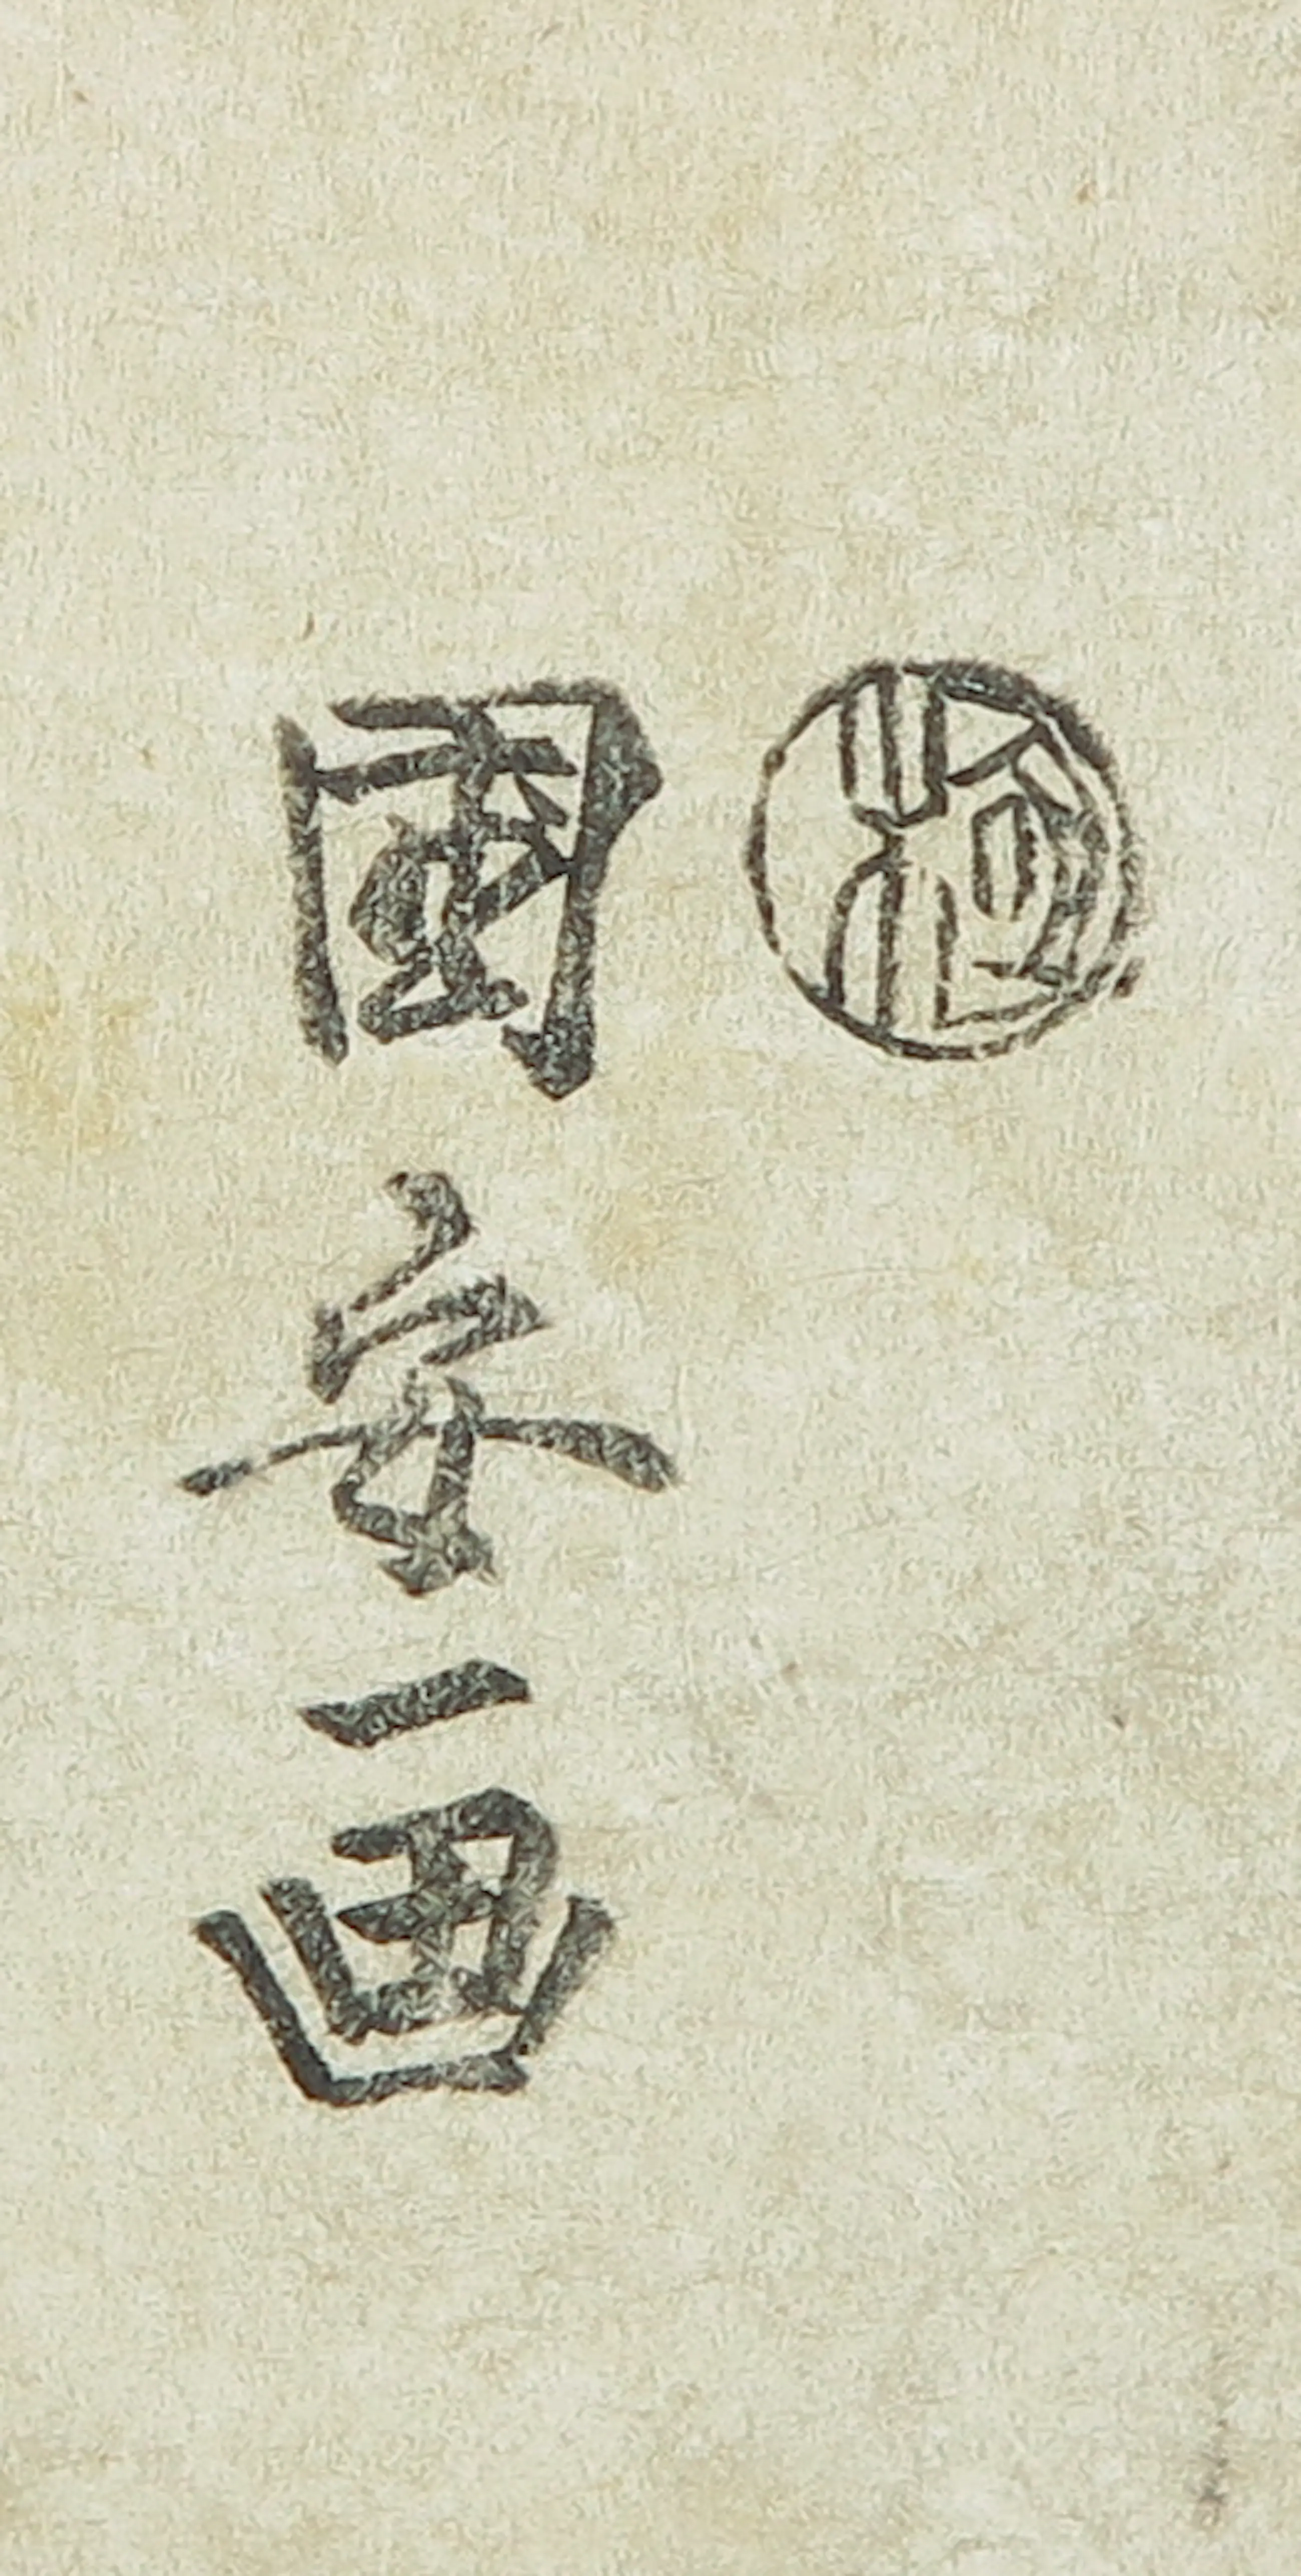 極
國安画